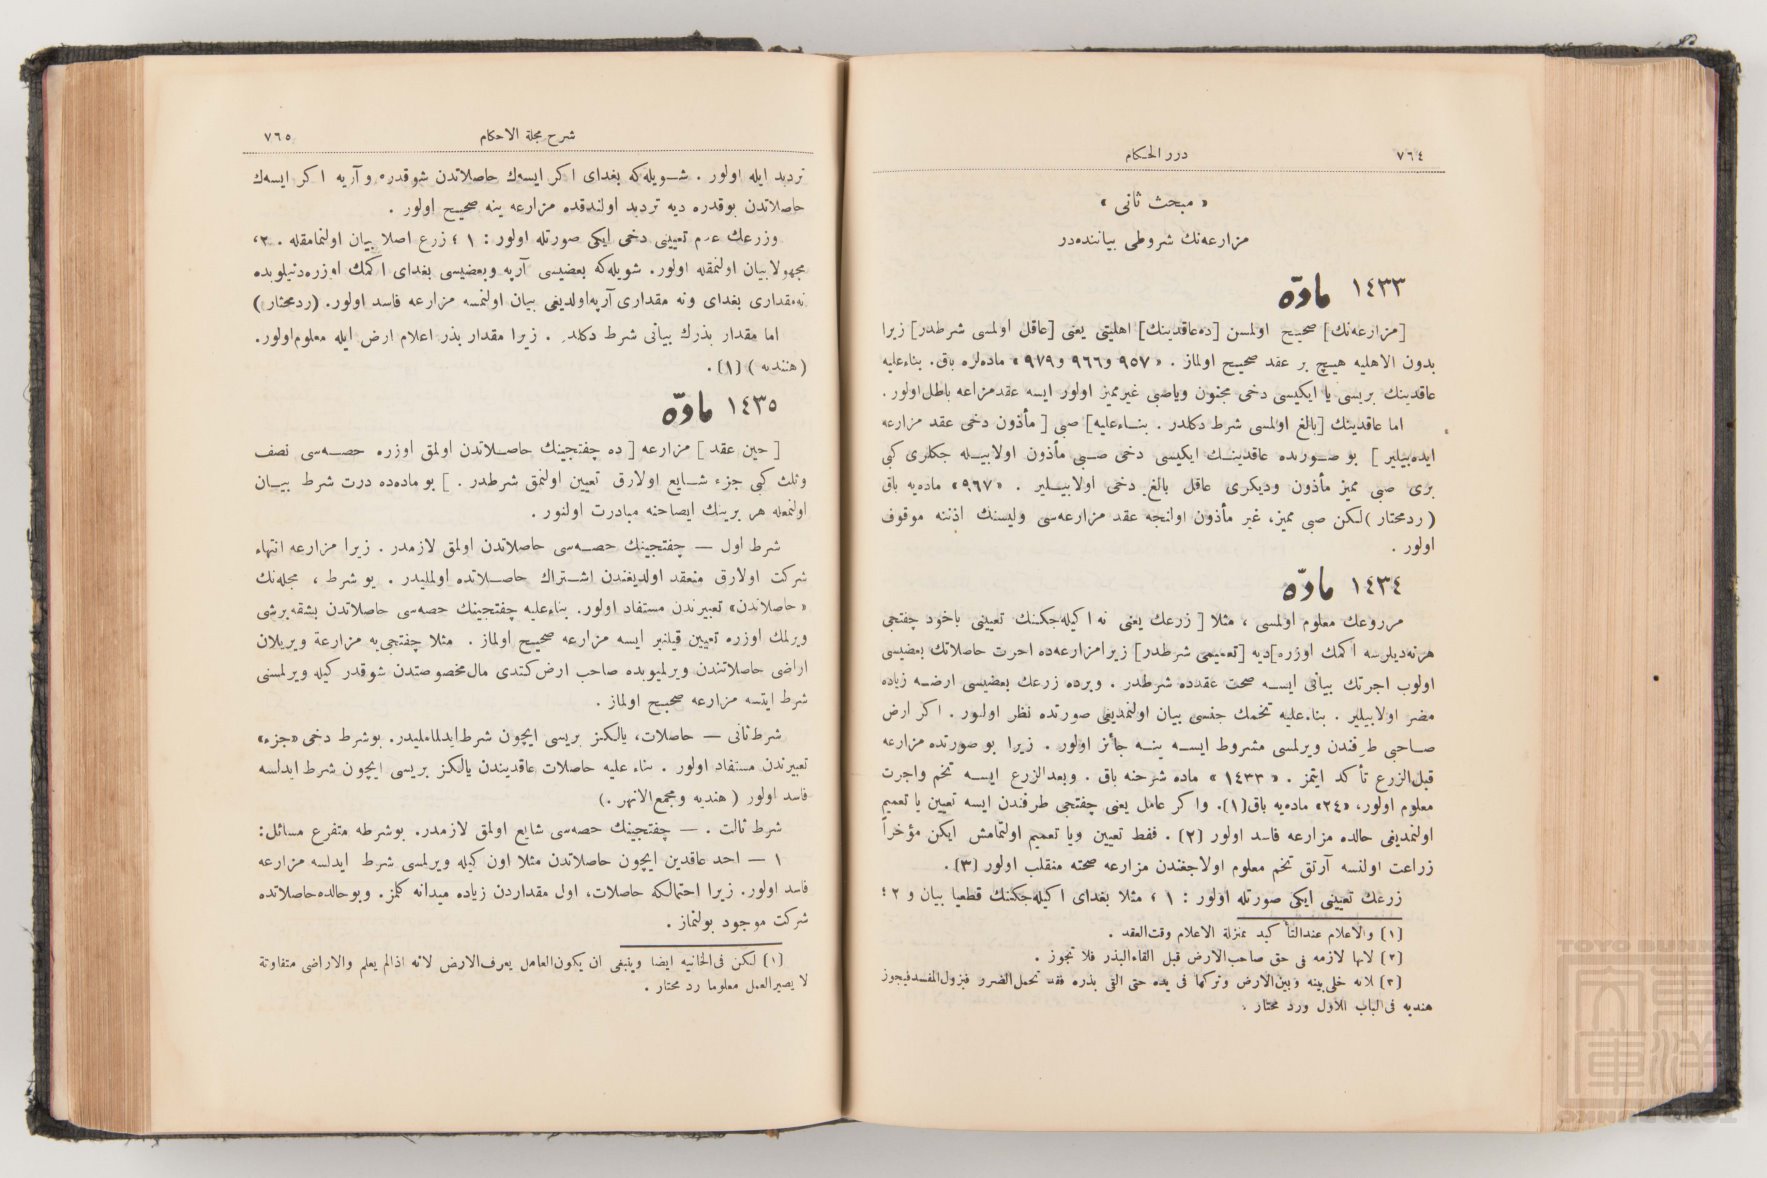 ٧٦٤
درر الحكام
« مبحث ثانى »
مزارعه‌نك شروطى بياننده‌در
١٤٣٣ مادّه
[مزارعه‌نك] صحيح اولمسن [ده‌عاقدينك] اهليتى يعنى [عاقل اولمسى شرطدر] زيرا
بدون الاهليه هيچ بر عقد صحيح اولماز . «٩٥٧ و٩٦٦ و٩٧٩» ماده‌لره باق. بناءعليه
عاقدينك بريسى يا ايكيسى دخى مجنون وياصبى غيرمميز اولور ايسه عقدمزاعه باطل‌اولور .
اما عاقدينك [بالغ اولمسى شرط دكلدر . بنــاءعليه] صبى [ مأذون دخى عقد مزارعه
ايده‌بيلير ] بو صــورىده عاقدينــك ايكيسى دخى صــبى مأذون اولابيــله جكلرى كبى
برى صبى مميز مأذون وديكرى عاقل بالغ دخى اولابيــلير . «٩٦٧» ماده‌يه باق
(ردمحتار) لكن صبى مميز، غير مأذون اولنجه عقد مزارعه‌سى وليسنك اذننه موقوف
اولور .
١٤٣٤ مادّه
مزروعك معلوم اولمسى ، مثلا [ زرعك يعنى نه اكيله‌جكنك تعيينى ياخود چفتجى
هرنه‌ديلرسه اكمك اوزره]ديه [تعميمى شرطدر] زيرامزارعه‌ده احرت حاصلاتك بعضيسى
اولوب اجرتك بيانى ايســه صحت عقدده شرطدر . وبرده زرعك بعضيسى ارضــه زياده
مضر اولابيلير . بناءعليه تخمك جنسى بيان اولنمديغى صورتده نظر اولنور . اكر ارض
صــاحبى طرفندن ويرلمسى مشروط ايســه ينــه جائز اولور . زيرا بو صورتده مزارعه
قبل‌الزرع تأكد ايتمز . «١٤٣٣» ماده شرحنه باق . وبعدالزرع ايســه تخم واجرت
معلوم اولور، «٢٤» ماده‌يه باق(١). واكر عامل يعنى چفتجى طرفندن ايسه تعيين يا تعميم
اولنمديغى حالده مزارعه فاسد اولور (٢) . فقط تعيين ويا تعميم اولنمامش ايكن مؤخراً
زراعت اولنسه آرتق تخم معلوم اولاجغندن مزارعه صحته منقلب اولور (٣).
زرعك تعيينى ايكى صورتله اولور : ١ ؛ مثلا بغداى اكيله‌جكنك قطعيا بيان و ٢ ؛
(١) والاعلام عندالتأكيد بمنزلة الاعلام وقت‌العقد .
(٢) لانها لازمه فى حق صاحب‌الارض قبل القاءالبذر فلا تجوز .
(٣) لانه خلى بينه وبين‌الارض وتركها فى يده حتى التى بذره فقد تحمل‌الضرر فيزول‌المفسدفيجوز
هنديه فى‌الباب الاول ورد محتار .
شرح مجلة الاحكام
٧٦٥
ترديد ايله اولور . شــويله‌كه بغداى اكر ايسه‌ك حاصلاتدن شوقدره وآرپه اكر ايسه‌ك
حاصلاتدن بوقدره ديه ترديد اولندقده مزارعه ينه صحيح اولور .
وزرعك عدم تعيينى دخى ايكى صورتله اولور : ١ ؛ زرع اصلا بيان اولنمامقله . ٢،
مجهولابيان اولنمقله اولور. شويله‌كه بعضيسى آرپه وبعضيسى بغداى اكمك اوزره‌دنيلوبده
نه‌مقدارى بغداى ونه مقدارى آرپه‌اولديغى بيان اولنمسه مزارعه فاسد اولور. (ردمحتار)
اما مقدار بذرك بيانى شرط دكلدر . زيرا مقدار بذر اعلام ارض ايله معلوم‌اولور.
(هنديه) (١) .
١٤٣٥ مادّه
[ حين عقد ] مزارعه [ ده چفتجينك حاصــلاتدن اولمق اوزره حصــه‌سى نصف
وثلث كبى جزء شــايع اولارق تعيين اولنمق شرطدر . ] بو ماده‌ده درت شرط بيــان
اولنمغله هر برينك ايضاحنه مبادرت اولنور .
شرط اول — چفتجينك حصــه‌سى حاصلاتدن اولمق لازمدر . زيرا مزارعه انتهاء
شركت اولارق منعقد اولديغندن اشــتراك حاصــلاتده اولمليدر . بو شرط ، مجله‌نك
«حاصلاتدن» تعبيرندن مستفاد اولور. بناءعليه چفتجينك حصه‌سى حاصلاتدن بشقه‌برشى
ويرلمك اوزره تعيين قيلنير ايسه مزارعه صحيح اولماز . مثلا چفتجى‌يه مزارعة ويريلان
اراضى حاصلاتندن ويرلميوبده صاحب ارض‌كندى مال‌مخصوصندن شوقدر كيله ويرلمسنى
شرط ايتسه مزارعه صحيح اولماز .
شرط‌ثانى — حاصلات، يالكز بريسى ايچون شرط‌ايدلمامليدر. بوشرط دخى «جزء»
تعبيرندن مستفاد اولور . بناء عليه حاصلات عاقديندن يالكز بريسى ايچون شرط ايدلسه
فاسد اولور ( هنديه ومجمع‌الانهر .)
شرط ثالث . — چفتجينك حصه‌سى شايع اولمق لازمدر. بوشرطه متفرع مسائل:
١ — احد عاقدين ايچون حاصلاتدن مثلا اون كيله ويرلمسى شرط ايدلسه مزارعه
فاسد اولور. زيرا احتمالكه حاصلات، اول مقداردن زياده ميدانه كلمز. وبوحالده‌حاصلاتده
شركت موجود بولنماز .
(١) لكن فى‌الخانيه ايضا وينبغى ان يكون‌العامل يعرف‌الارض لانه اذالم يعلم والاراضى متفاوتة
لا يصيرالعمل معلوما رد محتار .
TOYO BUNKO